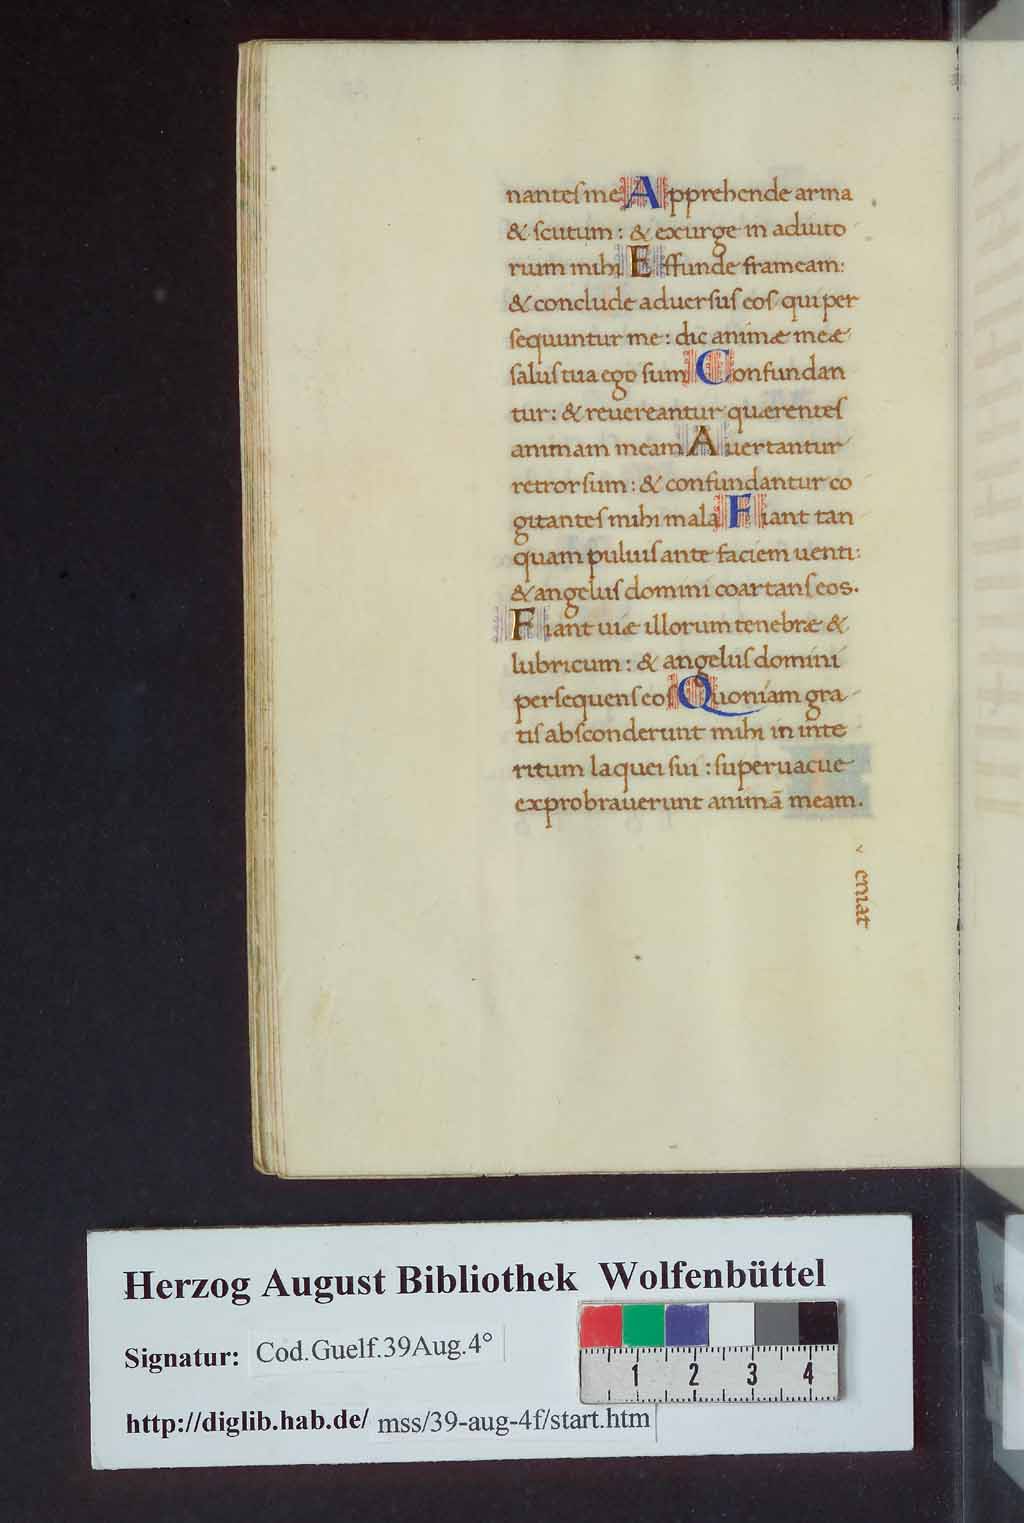 nantes me Apprehende arma
& scutum : & exurge in adiuto
rium mihi Effunde frameam:
& conclude aduersus eos qui per
sequuntur me : dic animæ meæ
salus tua ego sum Confundan
tur : & reuereantur quærentes
animam meam Auertantur
retrorsum : & confundantur co
gitantes mihi mala Fiant tan
quam puluis ante faciem uenti:
& angelus domini coartans eos.
Fiant uiæ illorum tenebræ &
lubricum : & angelus domini
persequens eos Quoniam gra
tis absconderunt mihi in inte
ritum laquei sui : superuacue
exprobrauerunt animā meam.
eniat
Herzog August Bibliothek Wolfenbüttel
Signatur: Cod.Guelf.39Aug.4°
http://diglib.hab.de/ mss/39-aug-4f/start.htm
1 2 3 4